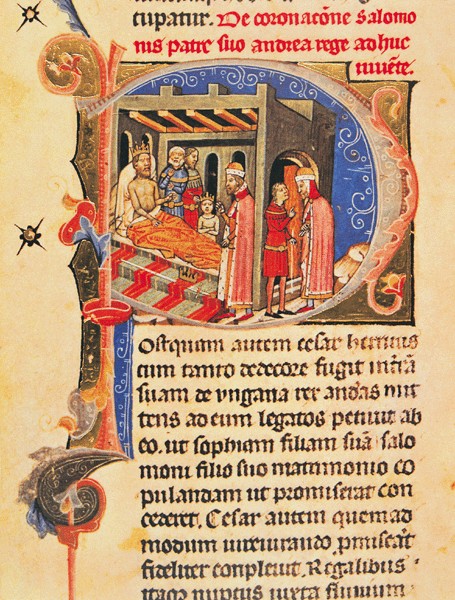 cupatur. De coronacõne Salomo
nis patre suo andrea rege adhuc
vivẽte.
Postquam autem cesar henricus
cum tanto dedecore fugit intra
suam de vngaria rex andreas mit
tens ad eum legatos petivit ab
eo. ut sophiam filiam suã salo
moni filio suo matrimonio co
pulandam ut promiserat con
cederet. Cesar autem quemad
modum iureiurando
fideliter conplevit. Regalibus
itaqz nuptijs iuxta fluvium